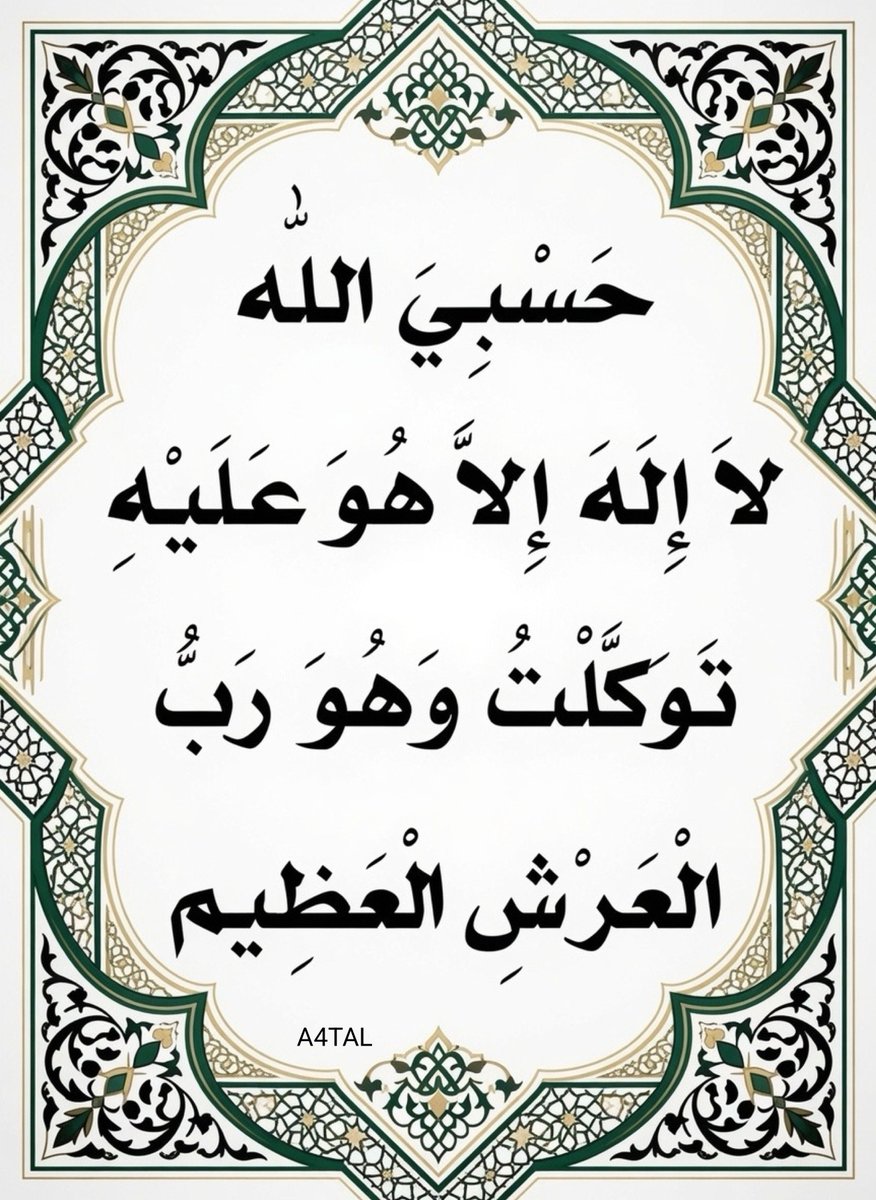 حَسْبِيَ اللّٰه
لاَ إِلَهَ إِلاَّ هُوَ عَلَيْهِ
تَوَكَّلْتُ وَهُوَ رَبُّ
الْعَرْشِ الْعَظِيم
A4TAL